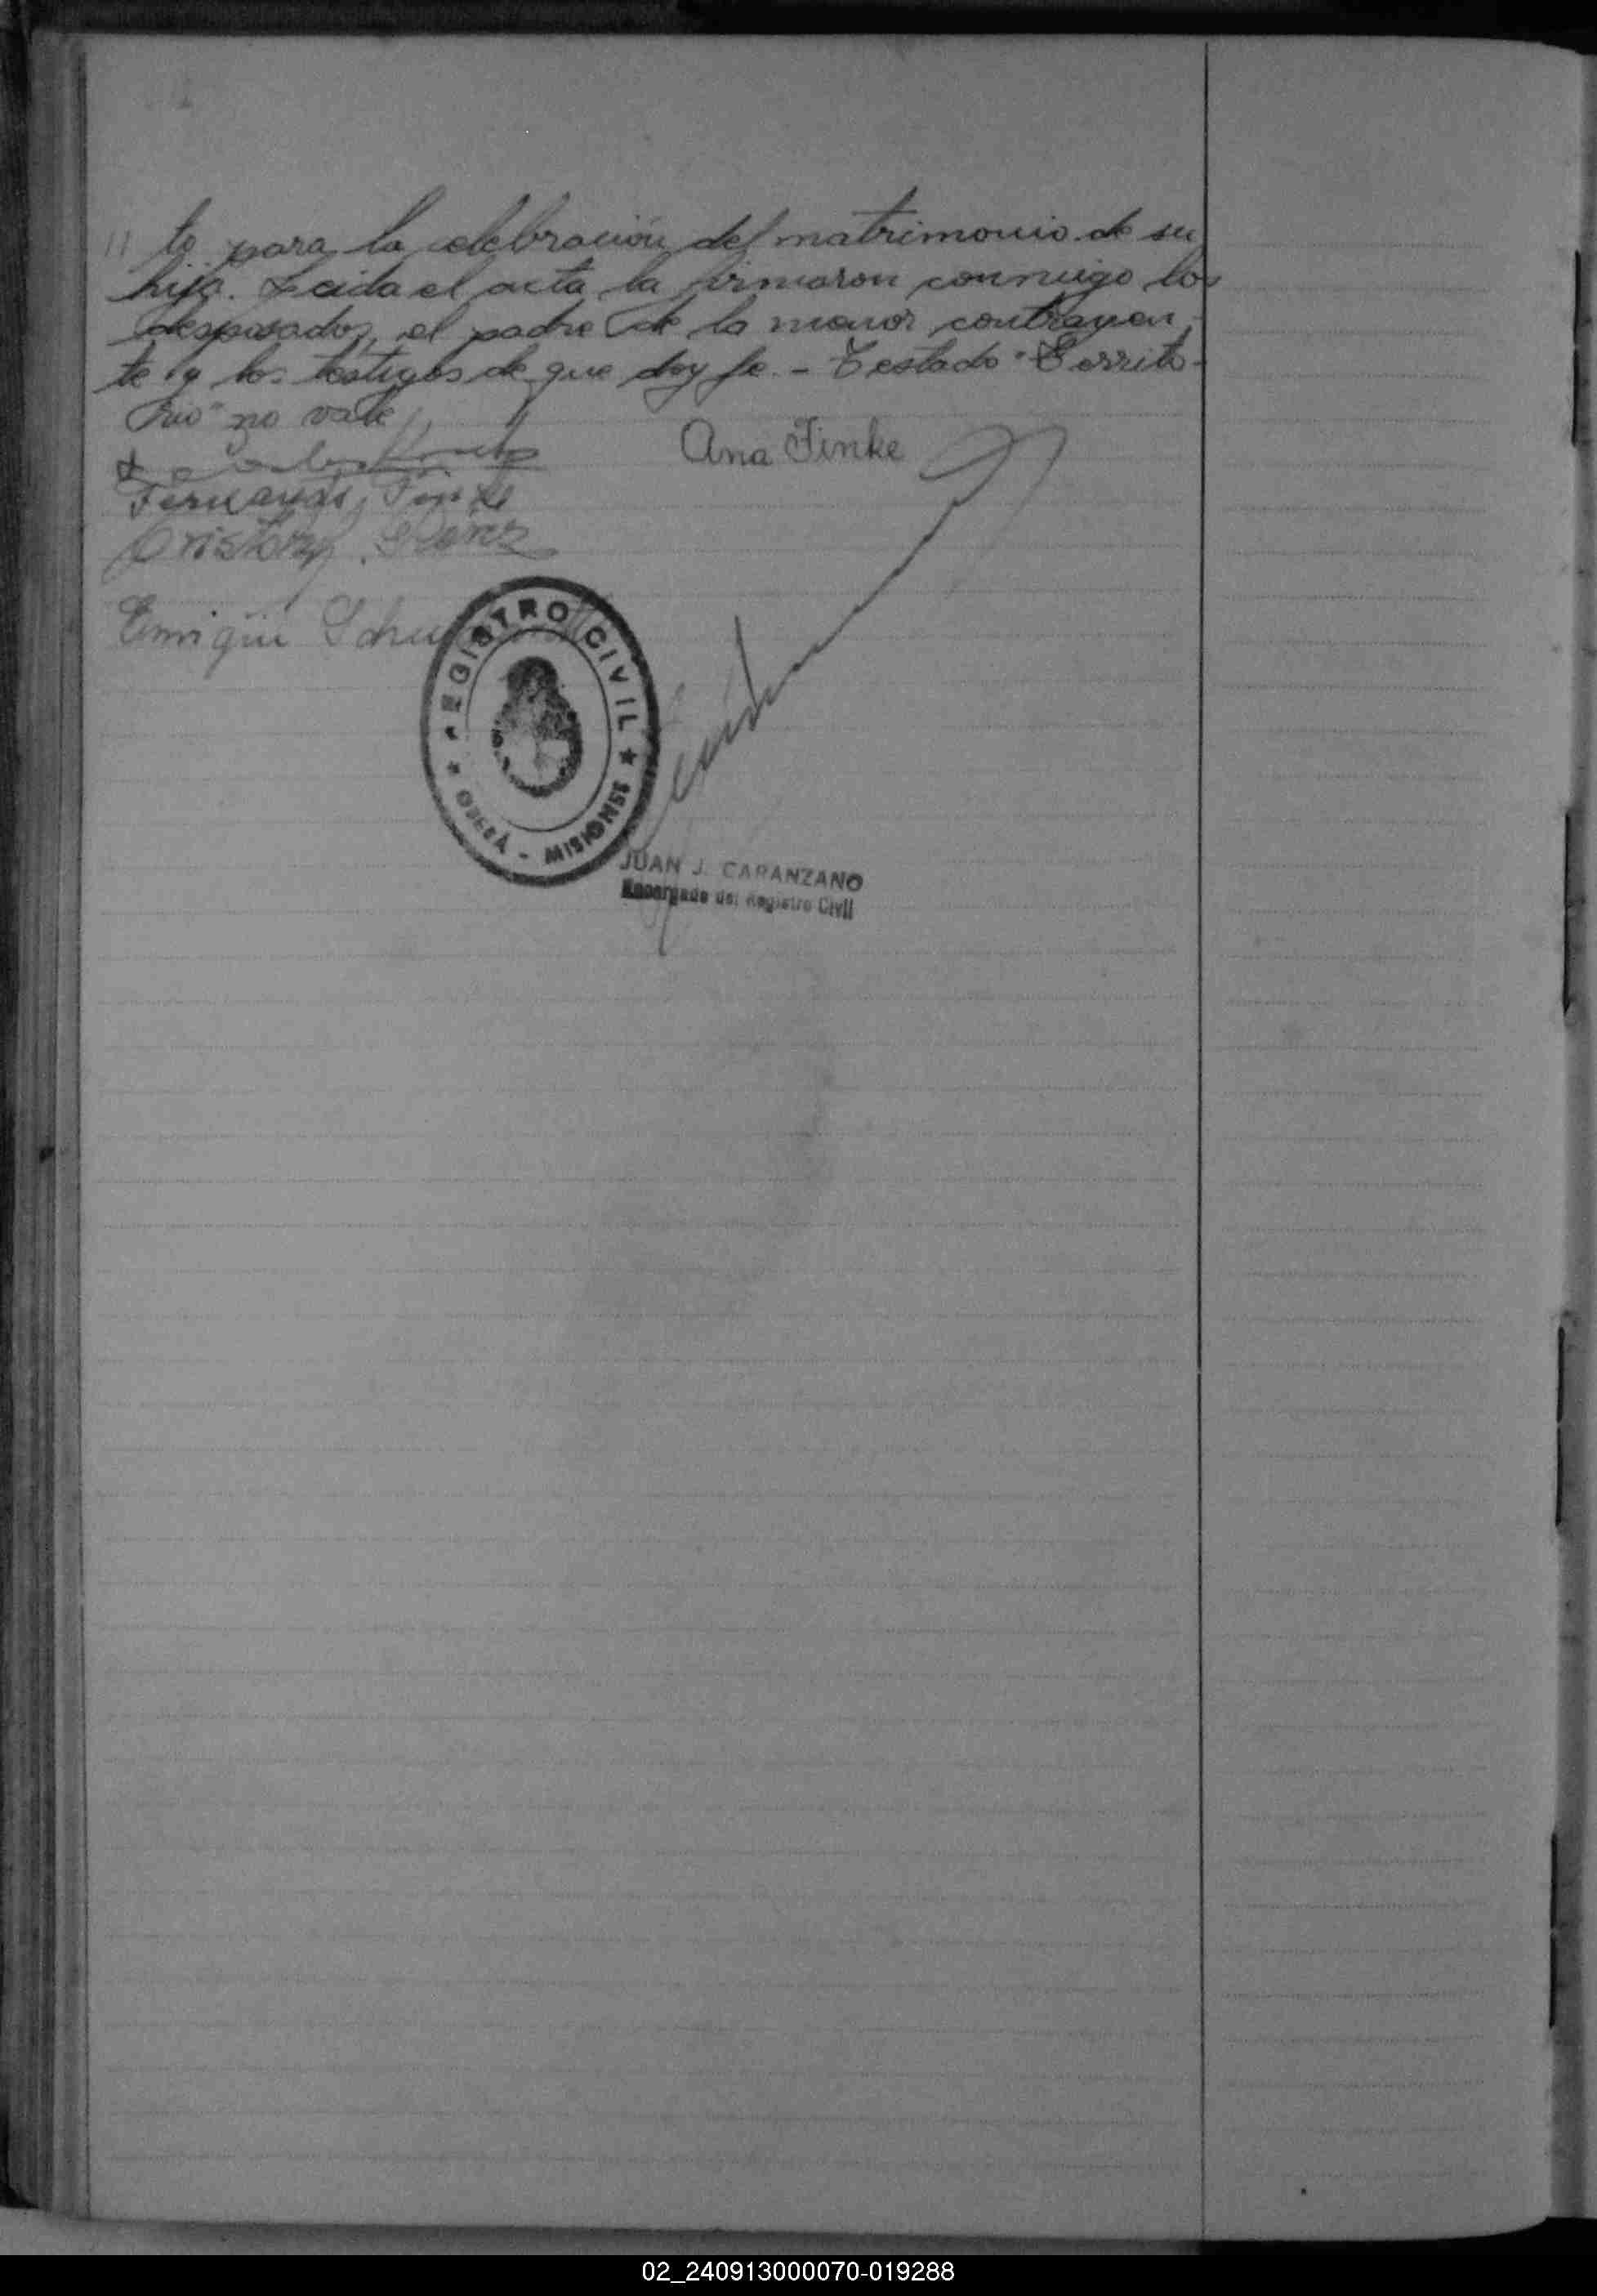 // to para la celebración del matrimonio de su
hija. Leida el acta la firmaron conmigo los
desposados, el padre de la menor contrayen-
te y los testigos de que doy fe. - Testado "Territo-
rio" no vale
Ana Finke
Fernando Finke
Enrique
REGISTRO CIVIL
OBERÁ - MISIONES
JUAN J. CARANZANO
Encargado del Registro Civil
02_240913000070-019288